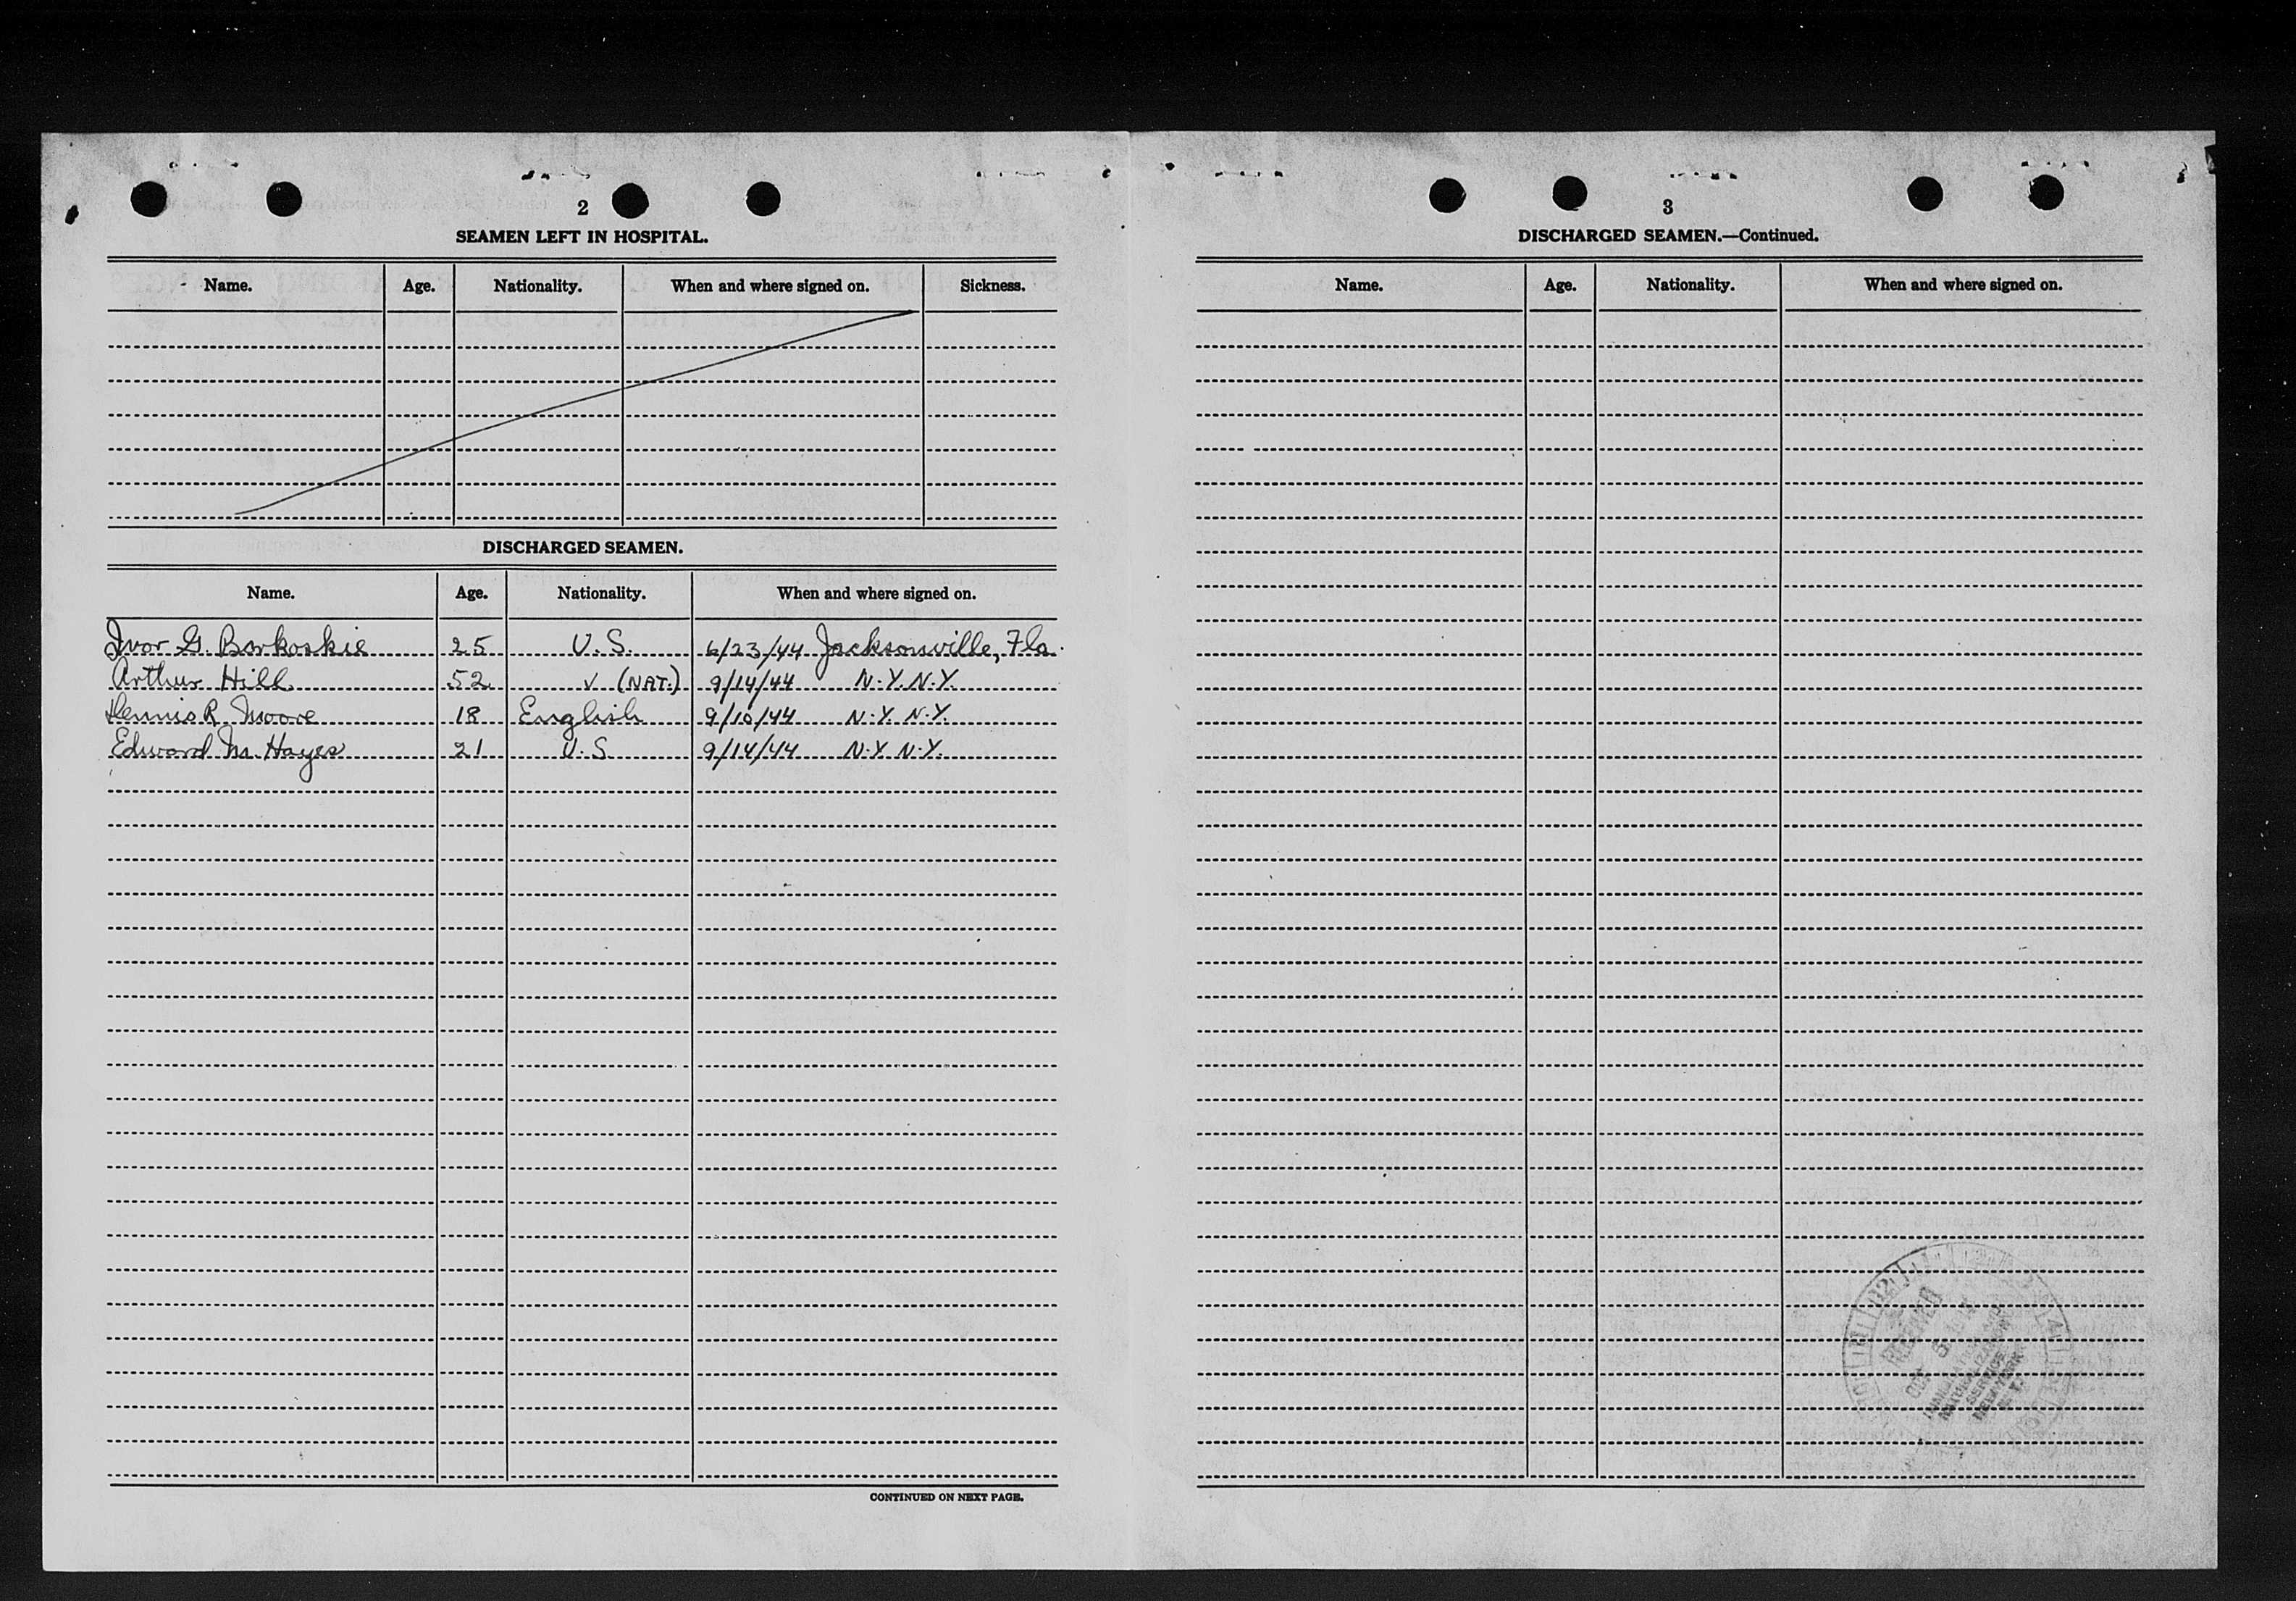 2
SEAMEN LEFT IN HOSPITAL.
Name. Age. Nationality. When and where signed on. Sickness.
DISCHARGED SEAMEN.
Name. Age. Nationality. When and where signed on.
Ivor G. Barkoskie 25 U.S. 6/23/44 Jacksonville, Fla.
Arthur Hill 52 ✓ (NAT.) 9/14/44 N.Y. N.Y.
Dennis R. Moore 18 English 9/10/44 N.Y. N.Y.
Edward M. Hayes 21 U.S. 9/14/44 N.Y. N.Y.
CONTINUED ON NEXT PAGE.
3
DISCHARGED SEAMEN.—Continued.
Name. Age. Nationality. When and where signed on.
RECEIVED
OCT 5
IMMIGRATION AND
NATURALIZATION
SERVICE
NEW YORK